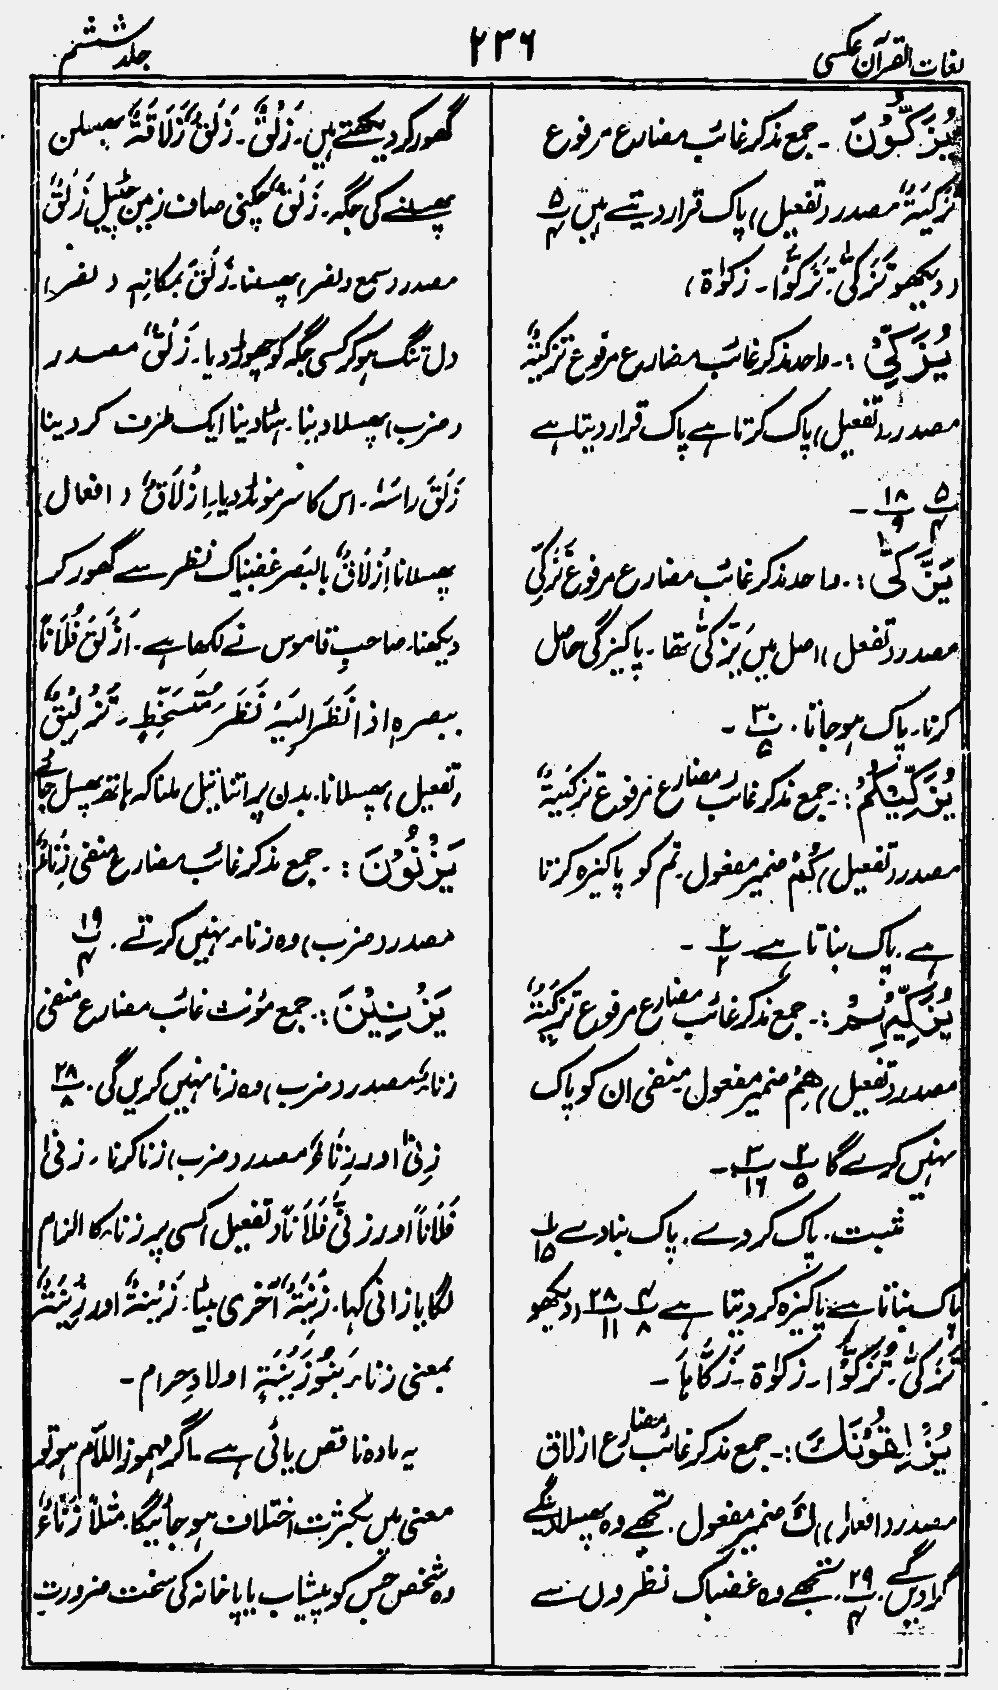 لغات القرآن عکسی
۲۳۶
جلد ششم
یُزَکُّوْنَ ۔ جمع مذکر غائب مضارع مرفوع
تَزْکِیَۃٌ مصدر (تفعیل) پاک قرار دیتے ہیں ۵/۴
(دیکھو تَزَکّٰی۔ تُزَکُّوْا۔ زکوٰۃ)
یُزَکِّیْ :۔ واحد مذکر غائب مضارع مرفوع تَزْکِیَۃٌ
مصدر (تفعیل) پاک کرتا ہے پاک قرار دیتا ہے
۵/۴ ۱۸/۹ ۔
یَزَّکّٰی :۔ واحد مذکر غائب مضارع مرفوع تَزَکِّی
مصدر (تفعل) اصل میں یَتَزَکّٰی تھا۔ پاکیزگی حاصل
کرنا۔ پاک ہو جانا۔ ۳۰/۵ ۔
یُزَکِّیْکُمْ :۔ جمع مذکر غائب مضارع مرفوع تَزْکِیَۃٌ
مصدر (تفعیل) کُمْ ضمیر مفعول۔ تم کو پاکیزہ کرتا
ہے۔ پاک بناتا ہے۔ ۲/۲ ۔
یُزَکِّیْہِمْ :۔ جمع مذکر غائب مضارع مرفوع تَزْکِیَۃٌ
مصدر (تفعیل) ھِمْ ضمیر مفعول منفی ان کو پاک
نہیں کرے گا ۲/۵ ۳/۱۶ ۔
مثبت۔ پاک کر دے۔ پاک بنا دے ۱/۱۵
پاک بناتا ہے پاکیزہ کر دیتا ہے ۴/۸ ۲۸/۱۱ (دیکھو
تَزَکّٰی۔ تُزَکُّوْا۔ زکوٰۃ۔ زَکّٰاہَا ۔
یُزْلِقُوْنَکَ :۔ جمع مذکر غائب مضارع ازلاق
مصدر (افعال) کَ ضمیر مفعول۔ تجھے وہ پھسلا دینگے
گرا دیں گے۔ ۲۹/۴ ۔ تجھے وہ غضبناک نظروں سے
گھور کر دیکھتے ہیں۔ زَلْقٌ۔ زَلَقٌ زَلَاقَۃٌ پھسلن
پھسلنے کی جگہ۔ زَلَقٌ چکنی صاف زمین چٹیل زَلَقٌ
مصدر (سمع و نصر) پھسلنا۔ زَلَقَ بمکانِہٖ (نصر)
دل تنگ ہو کر کسی جگہ کو چھوڑ دیا۔ زَلْقٌ مصدر
(ضرب) پھسلا دینا۔ ہٹا دینا ایک طرف کر دینا
زَلَقَ راسَہٗ۔ اس کا سر مونڈ دیا۔ اِزْلَاقٌ (افعال)
پھسلانا اِزْلَاقٌ بالبَصَر غضبناک نظر سے گھور کر
دیکھنا۔ صاحبِ قاموس نے لکھا ہے۔ اَزْلَقَ فُلَانًا
ببصرہٖ اذا نَظَرَ اِلَیْہِ نَظَرَ مُتَسَخِّطٍ۔ تَزْلِیْقٌ
(تفعیل) پھسلانا۔ بدن پر اتنا تیل ملنا کہ ہاتھ پھسل جائے
یَزْنُوْنَ :۔ جمع مذکر غائب مضارع منفی زِنَاءٌ
مصدر (ضرب) وہ زناء نہیں کرتے۔ ۱۹/۴
یَزْنِیْنَ :۔ جمع مؤنث غائب مضارع منفی
زناءٌ مصدر (ضرب) وہ زنا نہیں کریں گی۔ ۲۸/۸
زِنیً اور زِنَاءٌ مصدر (ضرب) زنا کرنا۔ زنیٰ
فَلَاناً اور زنیّٰ فَلَاناً (تفعیل) کسی پر زناء کا الزام
لگایا زانی کہا۔ زَنِیَۃٌ آخری بیٹا۔ زَنْیَۃٌ اور زِنْیَۃٌ
بمعنی زناء بَنُوْ زَنْیَۃٍ اولادِ حرام ۔
یہ مادہ ناقص یائی ہے۔ اگر مہموز اللّام ہو تو
معنی میں بکثرت اختلاف ہو جائیگا۔ مثلاً زَنَّاءٌ
وہ شخص جس کو پیشاب یا پاخانہ کی سخت ضرورت